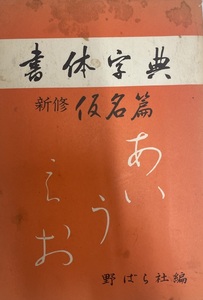 書体字典
新修 仮名篇
あいう
えお
野ばら社編